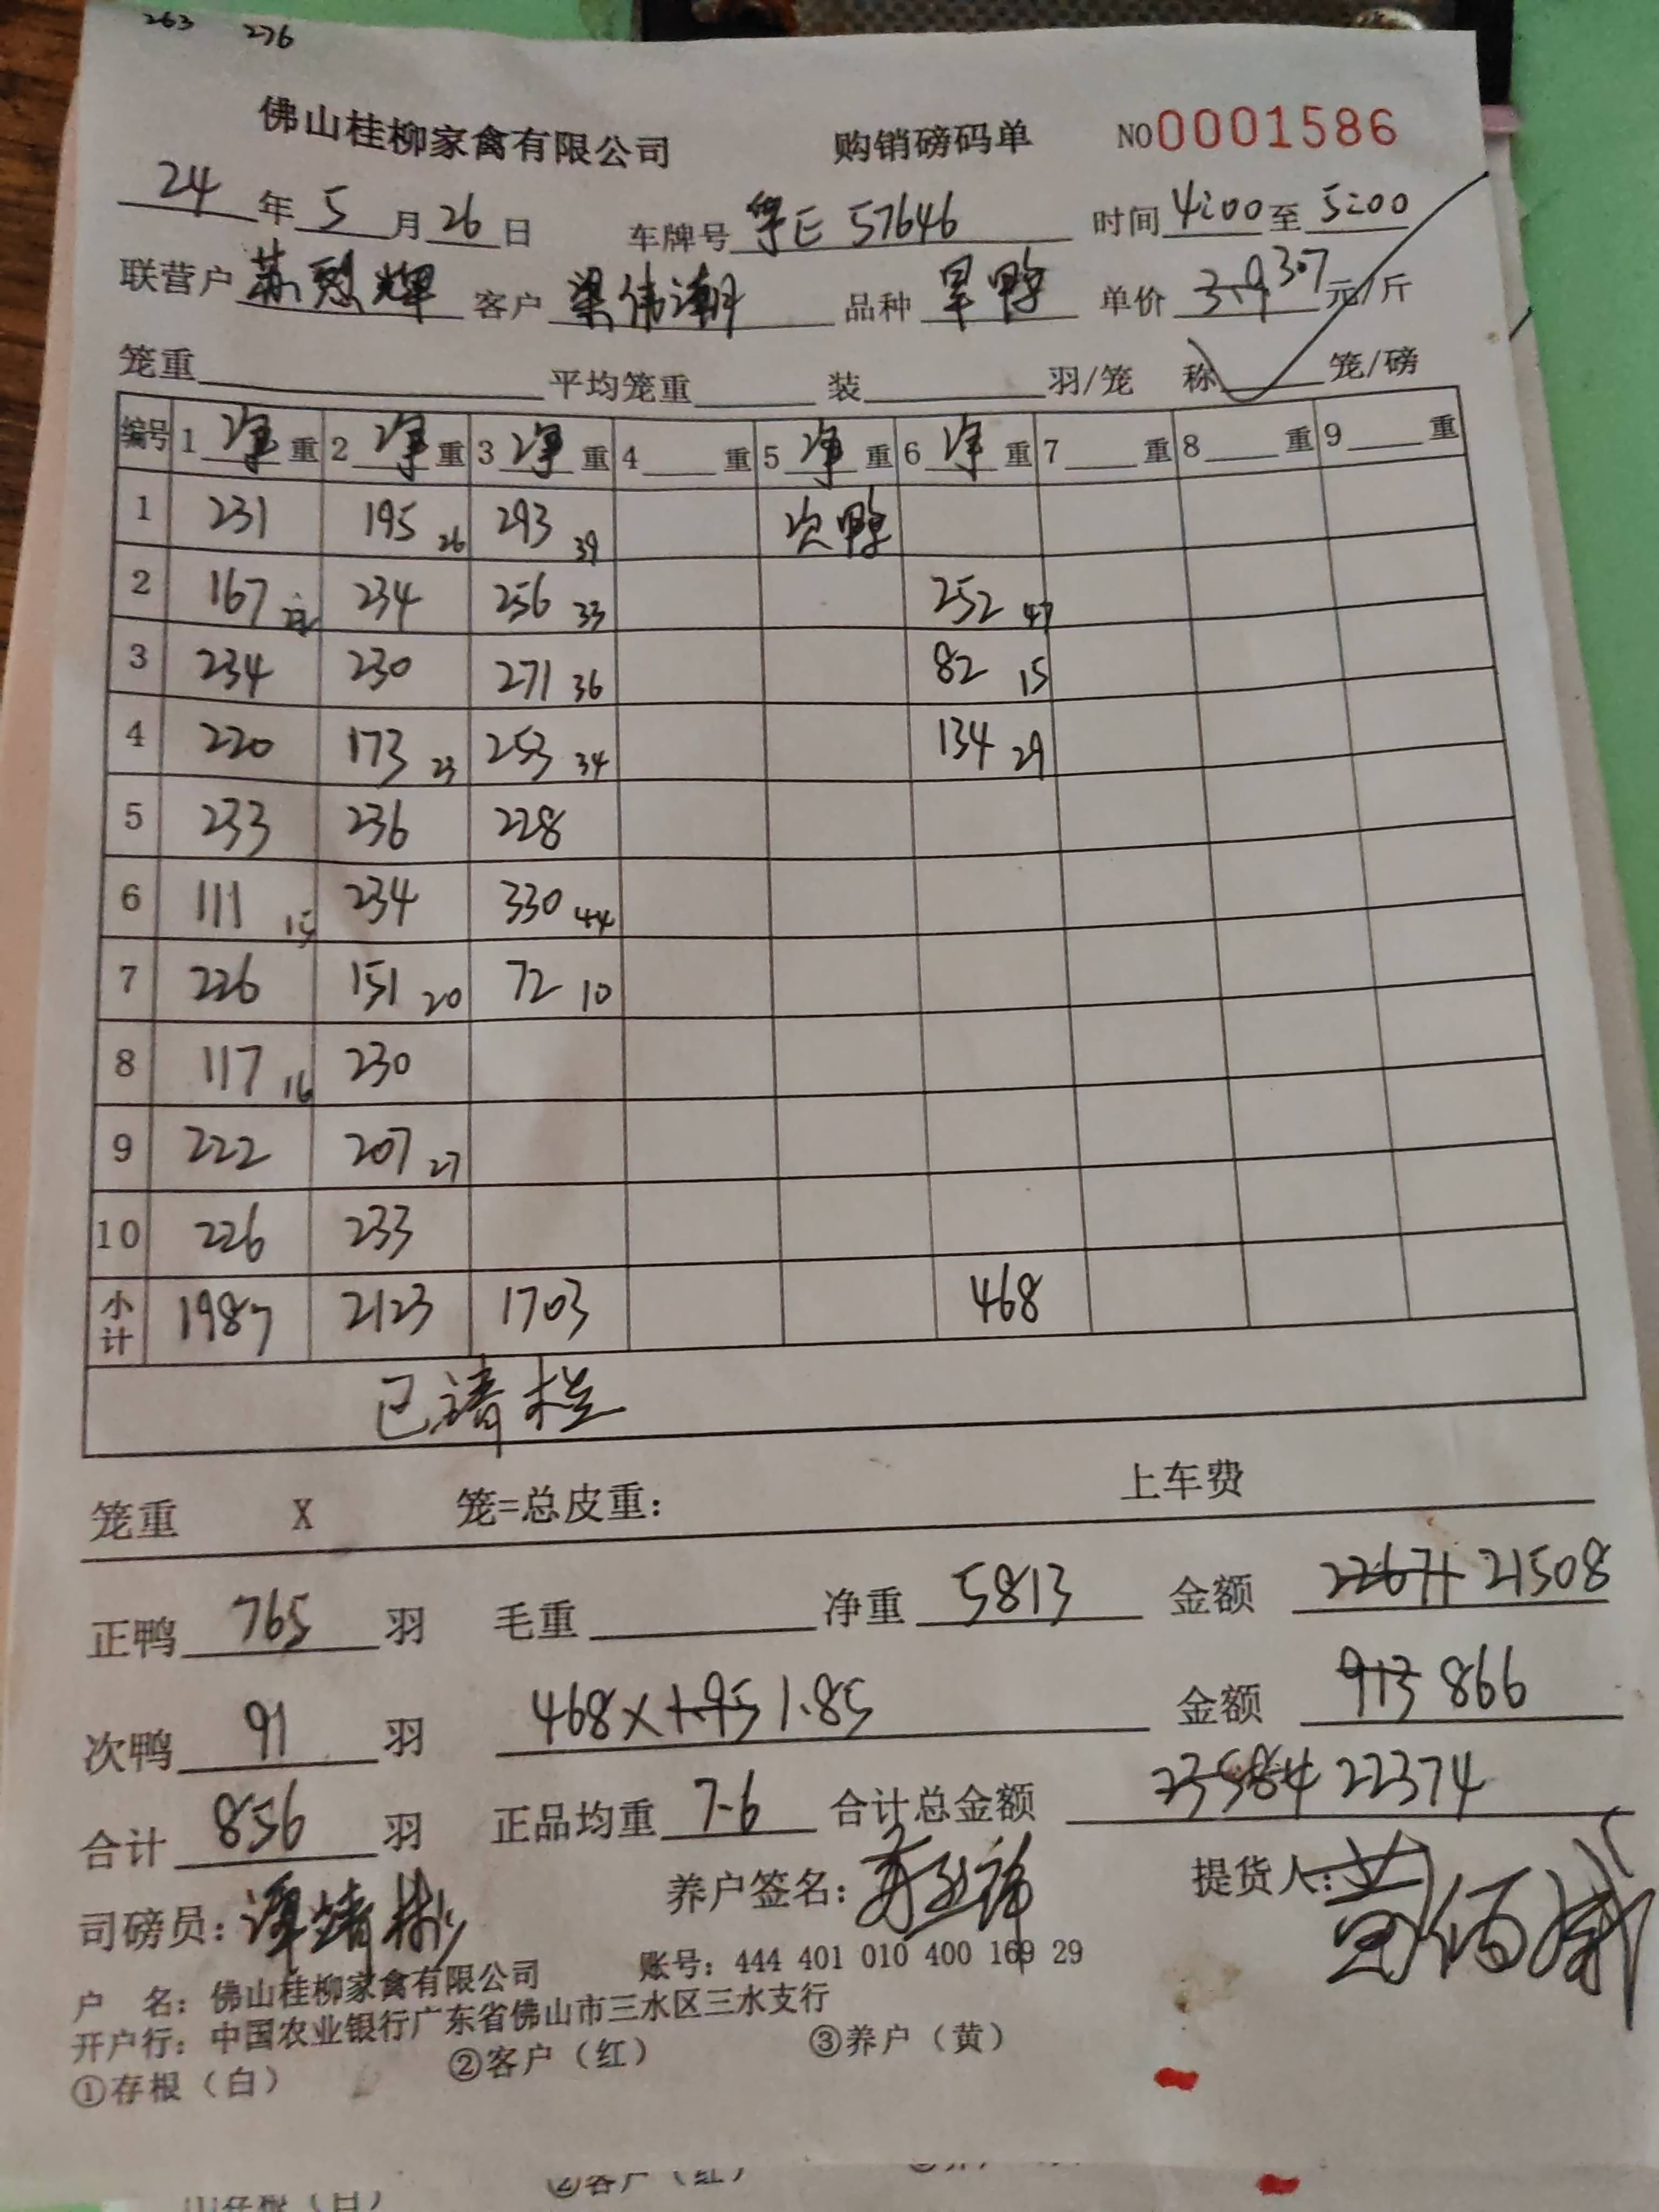 263 276
佛山桂柳家禽有限公司 购销磅码单 NO0001586
24年5月26日 车牌号粤E 57646 时间4:00至5:00
联营户苏烈辉 客户梁伟潮 品种旱鸭 单价3.9 3.7元/斤
笼重 平均笼重 装 羽/笼 称 笼/磅
编号 1净重 2净重 3净重 4重 5净重 6净重 7重 8重 9重
1 231 195 26 293 39 次鸭
2 167 234 256 33 252 47
3 234 230 271 36 82 15
4 220 173 23 253 34 134 29
5 233 236 228
6 111 15 234 330 44
7 226 151 20 72 10
8 117 16 230
9 222 207 27
10 226 233
小计 1987 2123 1703 468
已清栏
笼重 X 笼=总皮重: 上车费
正鸭765羽 毛重 净重5813 金额22671 21508
次鸭91羽 468×1.95 1.85 金额913 866
合计856羽 正品均重7.6 合计总金额23584 22374
司磅员: 养户签名: 提货人:
户 名: 佛山桂柳家禽有限公司 账号: 444 401 010 400 169 29
开户行: 中国农业银行广东省佛山市三水区三水支行
①存根（白） ②客户（红） ③养户（黄）
②客户（红）